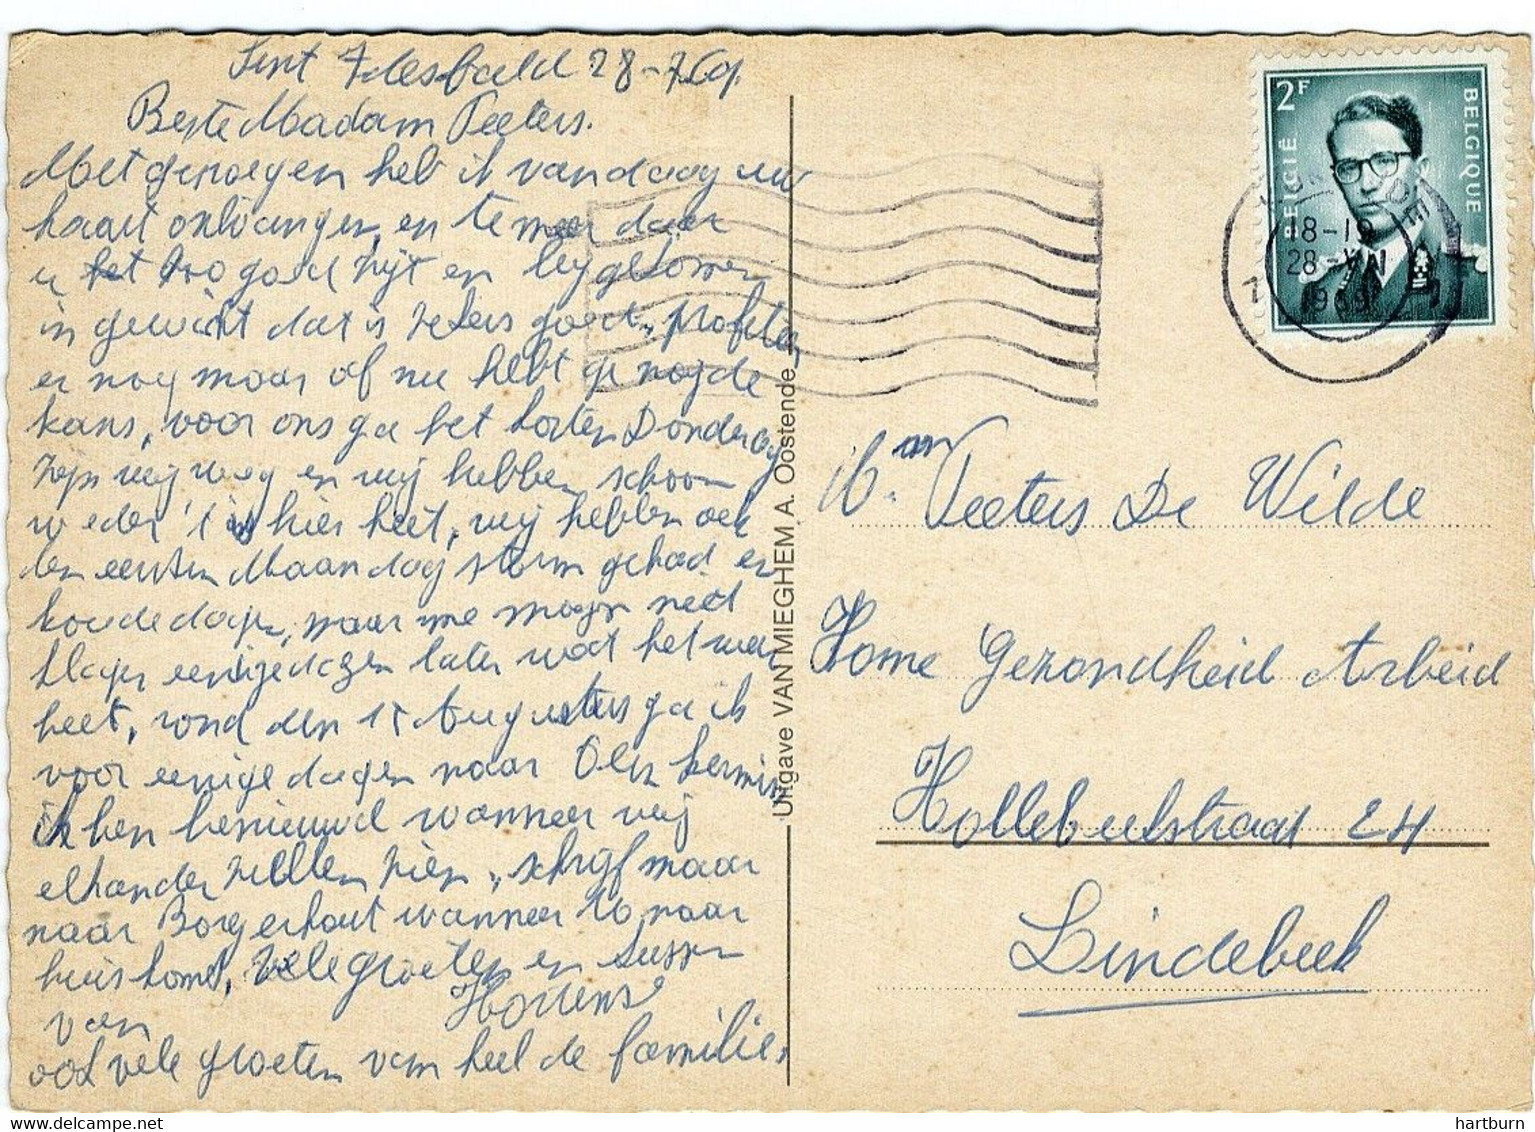 Sint Idesbald 28-7-69.
Beste Madam Peeters.
Met genoegen heb ik vandaag uw
kaart ontvangen, en te meer daar
u het zoo goed zijt en bijgekomen
in gewicht dat is zekers goed, profiteer
er nog maar of nu hebt ge nog de
kans, voor ons ga het korten Donderdag
zijn wij weg en wij hebben schoon
weder 't is hier heet, wij hebben ook
den eersten Maandag storm gehad en
koude dagen, maar we mogen niet
klagen eenige dagen later was het weer
heet, rond den 15 Augustus ga ik
voor eenige dagen naar Olen kermis
ik ben benieuwd wanneer wij
elkander zullen zien, schrijf maar
naar Borgerhout wanneer U naar
huis komt, vele groeten en kussen
van Hortense
ook vele groeten van heel de familie.
Uitgave VAN MIEGHEM A. Oostende
2F
BELGIË
BELGIQUE
18-19
28-VII
1969
Mme Peeters De Wilde
Home Gezondheid Arbeid
Hollebeekstraat 24
Lindebeek
hartburn